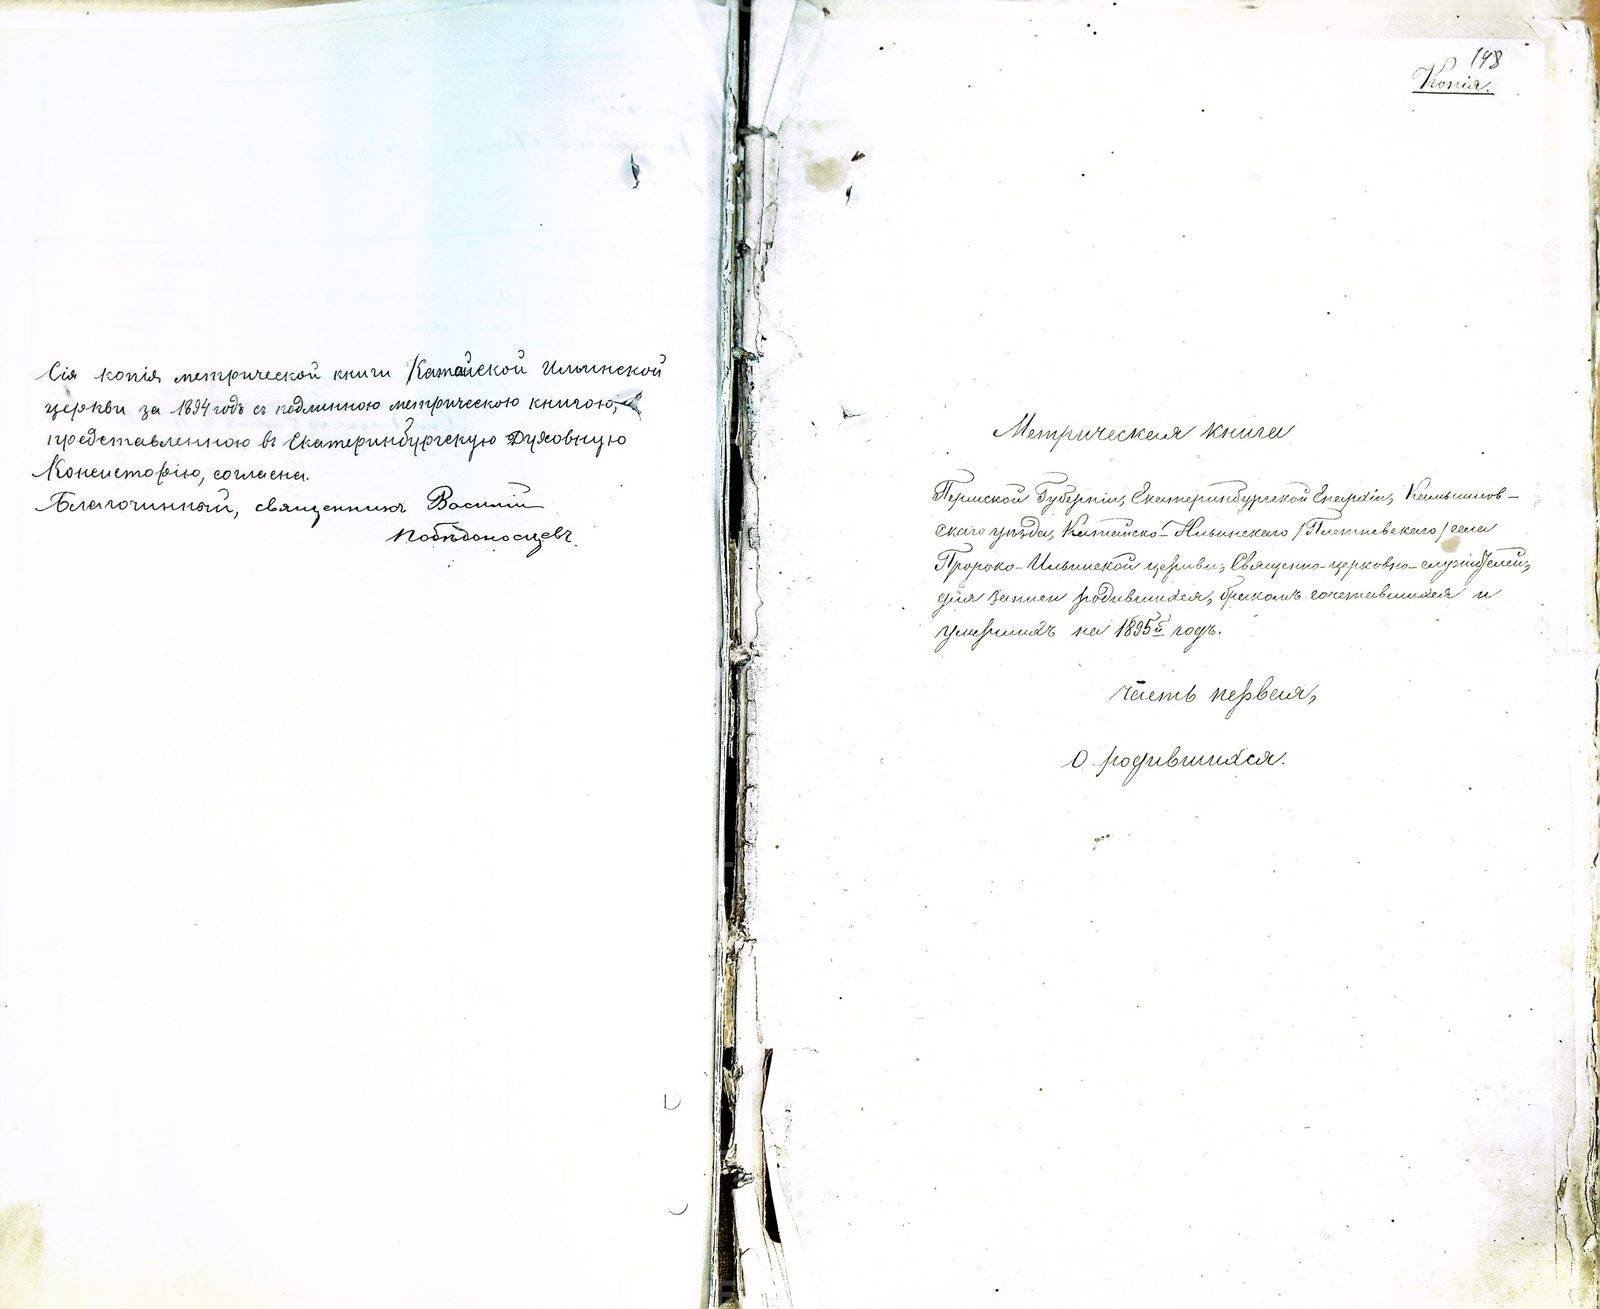 Сія копія метрической книги Катайской Ильинской
церкви за 1894 годъ съ подлинною метрическою книгою,
представленною въ Екатеринбургскую Духовную
Консисторію, согласна.
Благочинный, священникъ Василій
Побѣдоносцевъ.
148
Копія.
Метрическая книга
Пермской Губерніи, Екатеринбургской Епархіи, Камышлов-
скаго уѣзда, Катайско-Ильинскаго /
/ села
Пророко-Ильинской церкви, Священно-церковно-служителей,
для записи родившихся, бракомъ сочетавшихся и
умершихъ на 1895й годъ.
Часть первая,
О родившихся.